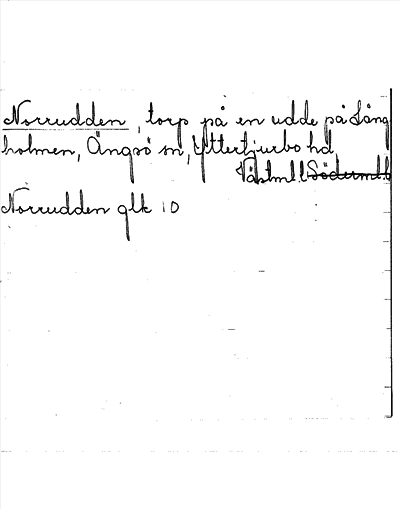 Norrudden, torp på en udde på Lång
holmen, Ängsö sn, Yttertjurbo hd,
Västml.l. Söderml.l.
Norrudden glk 10